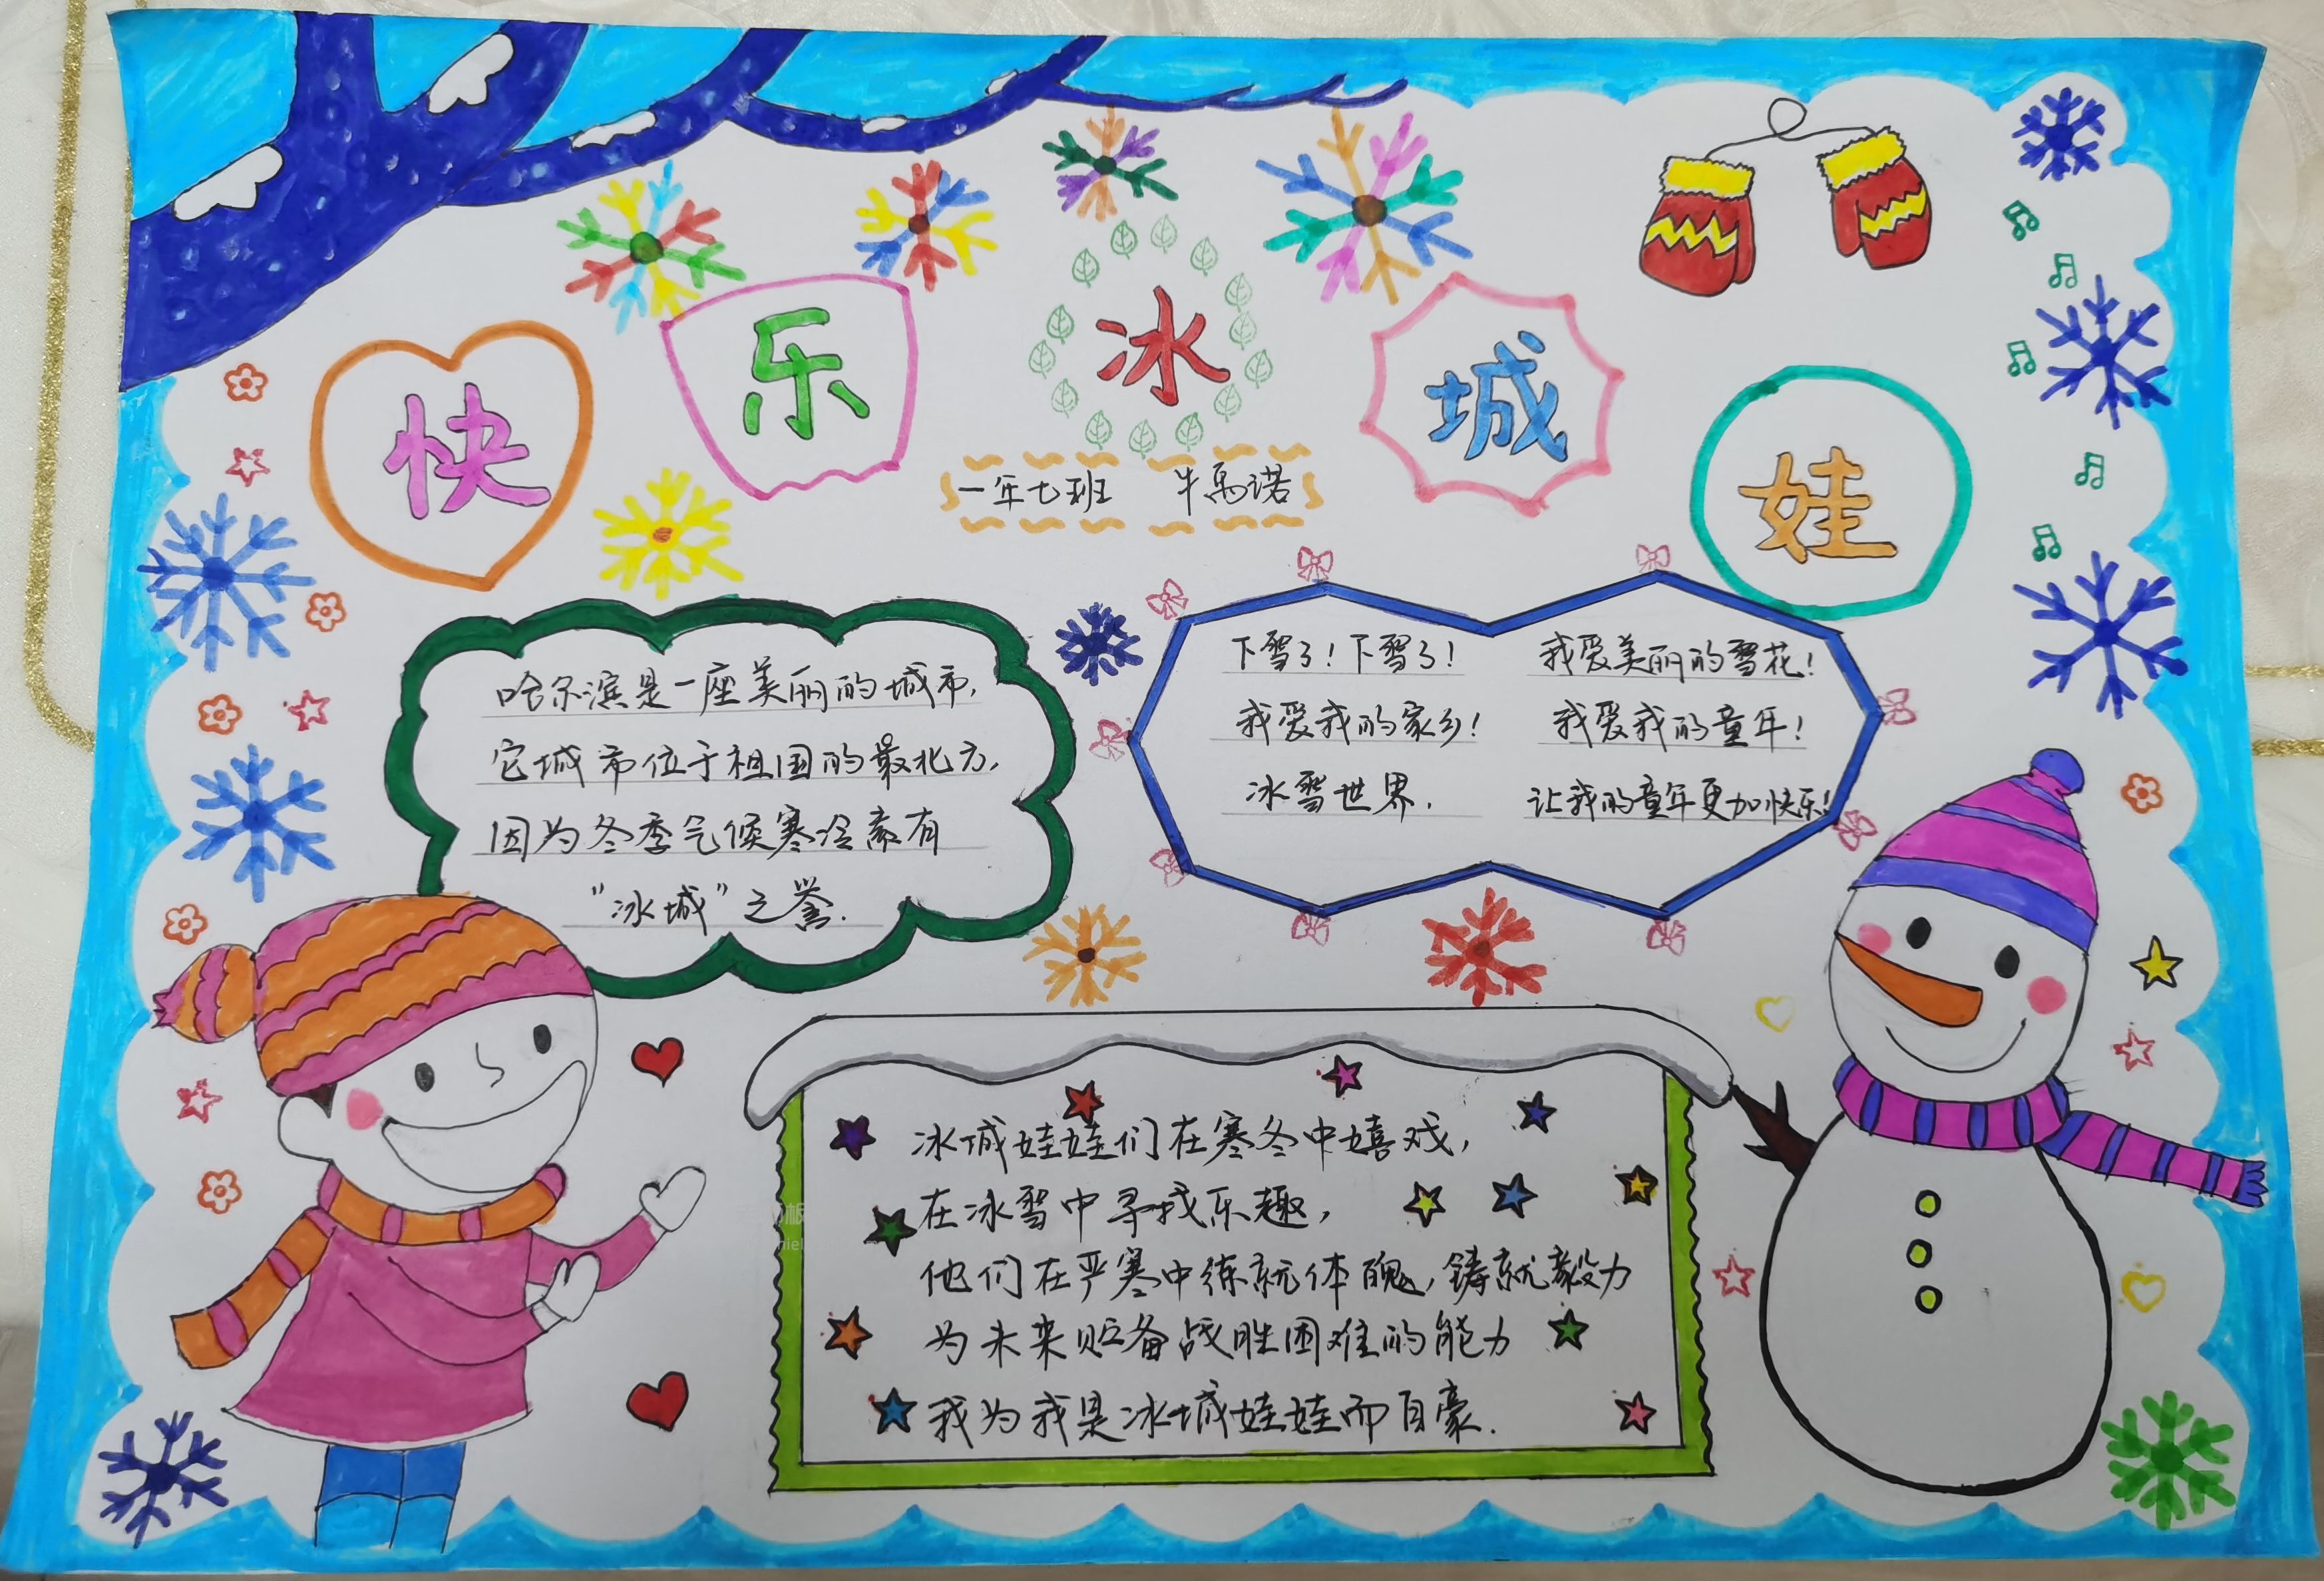 快乐冰城娃
一年七班 牛禹诺
哈尔滨是一座美丽的城市,
它城市位于祖国的最北方,
因为冬季气候寒冷素有
“冰城”之誉.
下雪了!下雪了!
我爱我的家乡!
冰雪世界.
我爱美丽的雪花!
我爱我的童年!
让我的童年更加快乐!
冰城娃娃们在寒冬中嬉戏,
在冰雪中寻找乐趣,
他们在严寒中练就体魄,铸就毅力
为未来贮备战胜困难的能力
我为我是冰城娃娃而自豪.